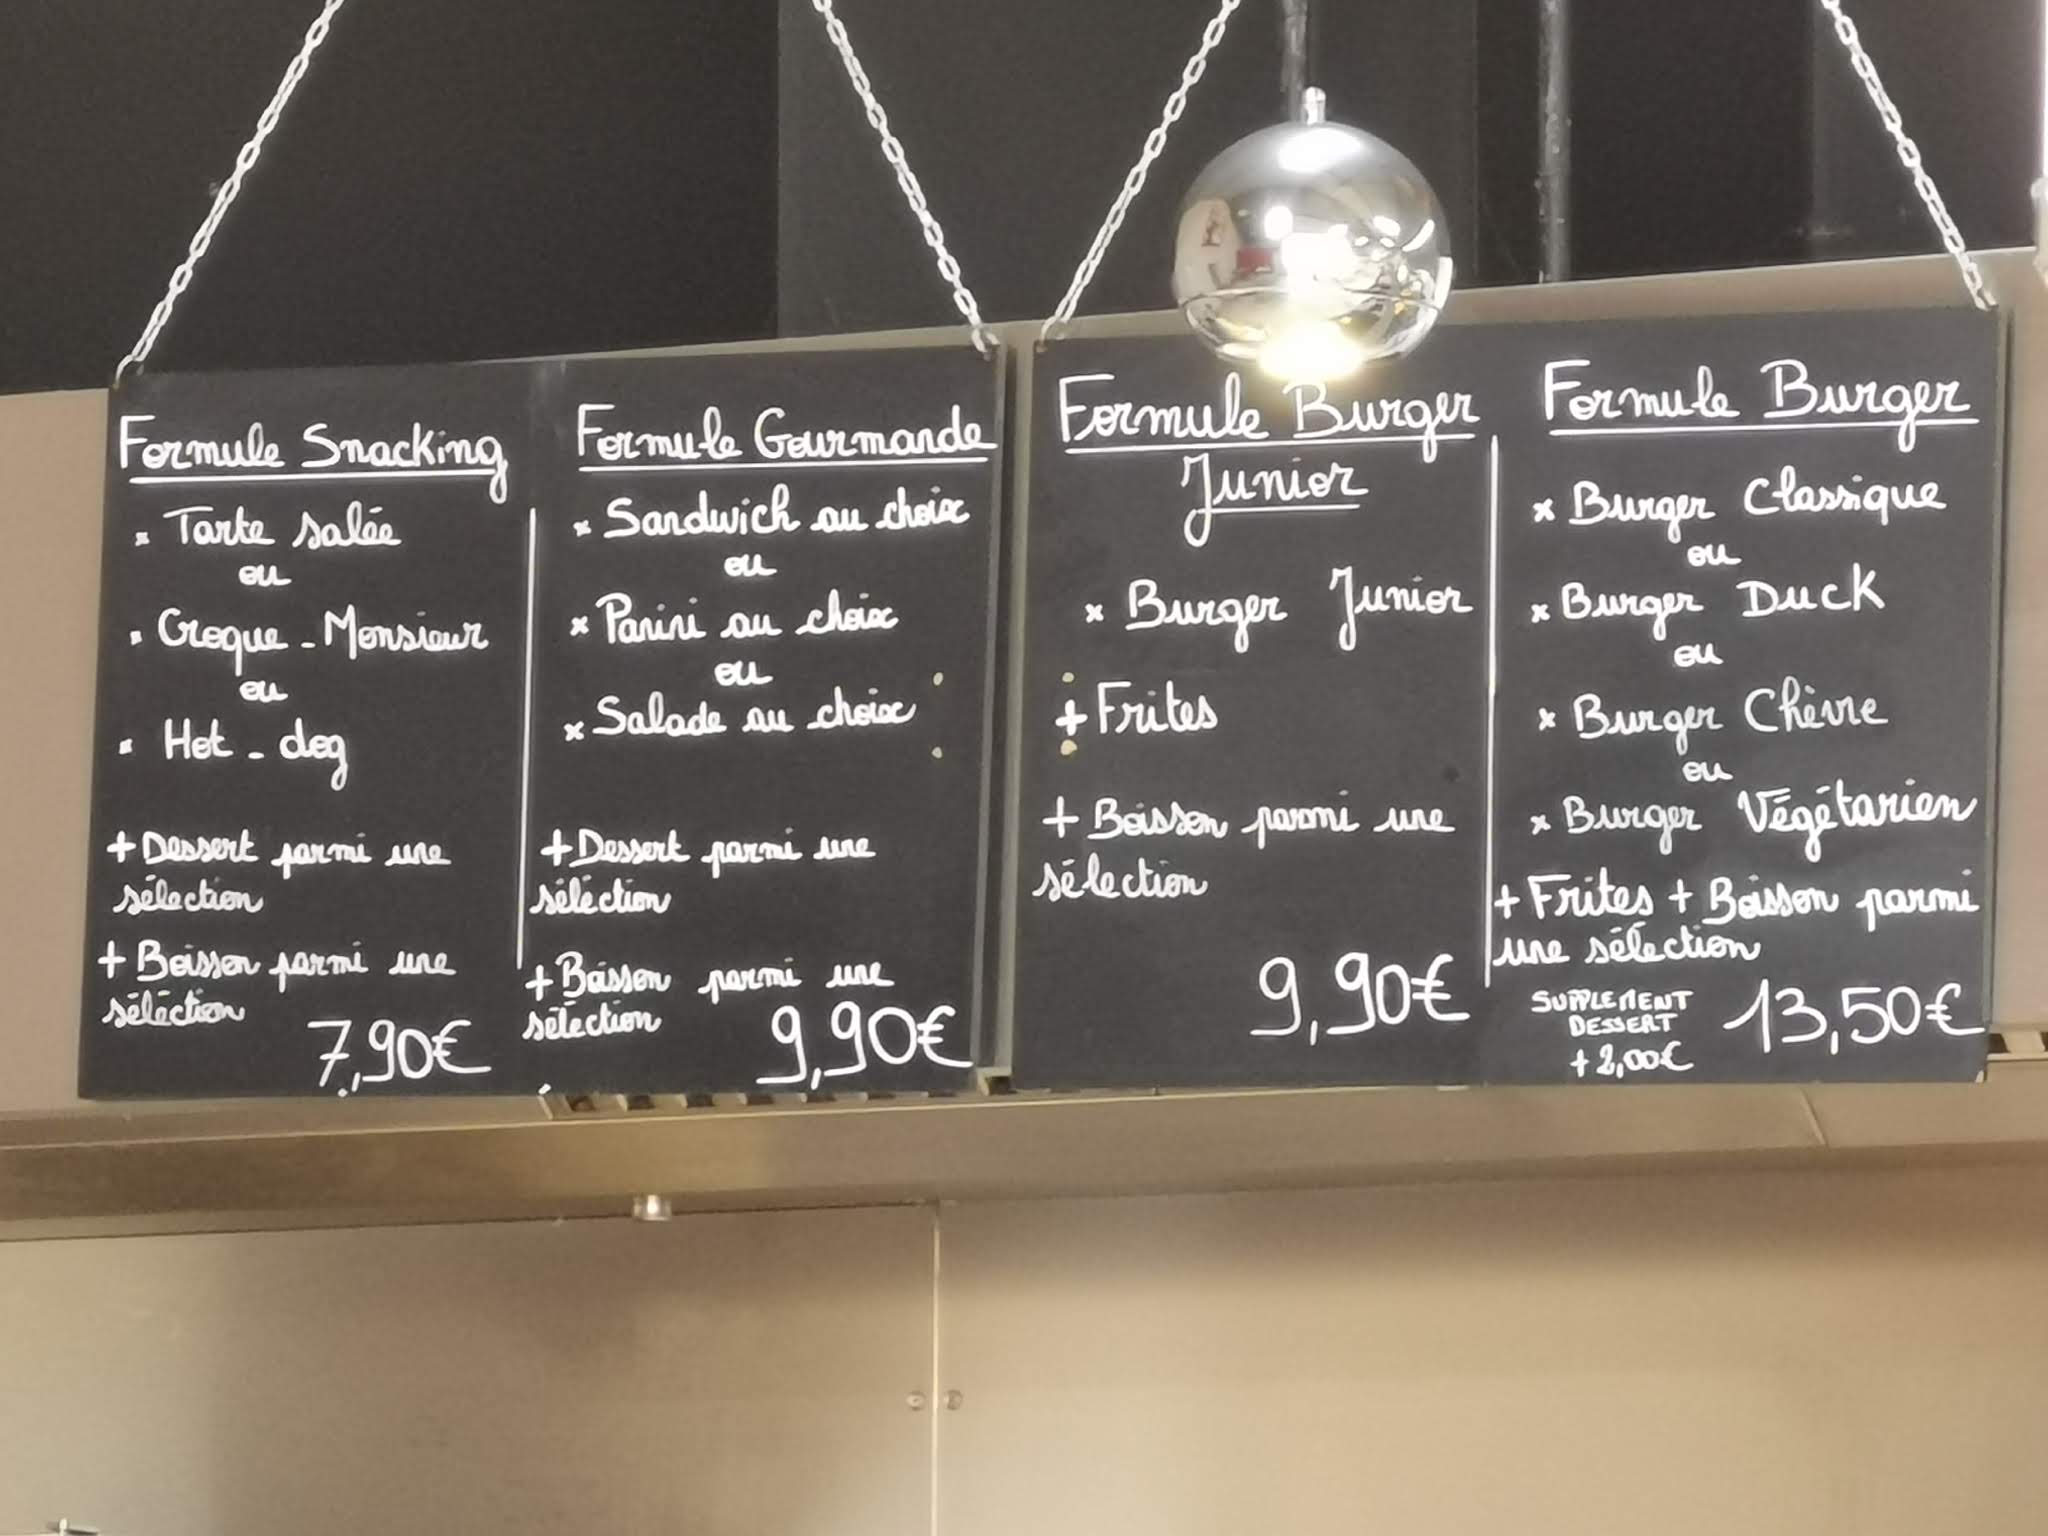 Formule Snacking
× Tarte salée
ou
× Croque-Monsieur
ou
× Hot-dog
+ Dessert parmi une
sélection
+ Boisson parmi une
sélection
7,90€
Formule Gourmande
× Sandwich au choix
ou
× Panini au choix
ou
× Salade au choix
+ Dessert parmi une
sélection
+ Boisson parmi une
sélection
9,90€
Formule Burger
Junior
× Burger Junior
+ Frites
+ Boisson parmi une
sélection
9,90€
Formule Burger
× Burger Classique
ou
× Burger Duck
ou
× Burger Chèvre
ou
× Burger Végétarien
+ Frites + Boisson parmi
une sélection
SUPPLEMENT
DESSERT
+ 2,00€
13,50€